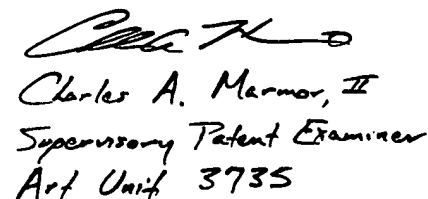 Charles A. Marmor, II
Supervisory Patent Examiner
Art Unit 3735